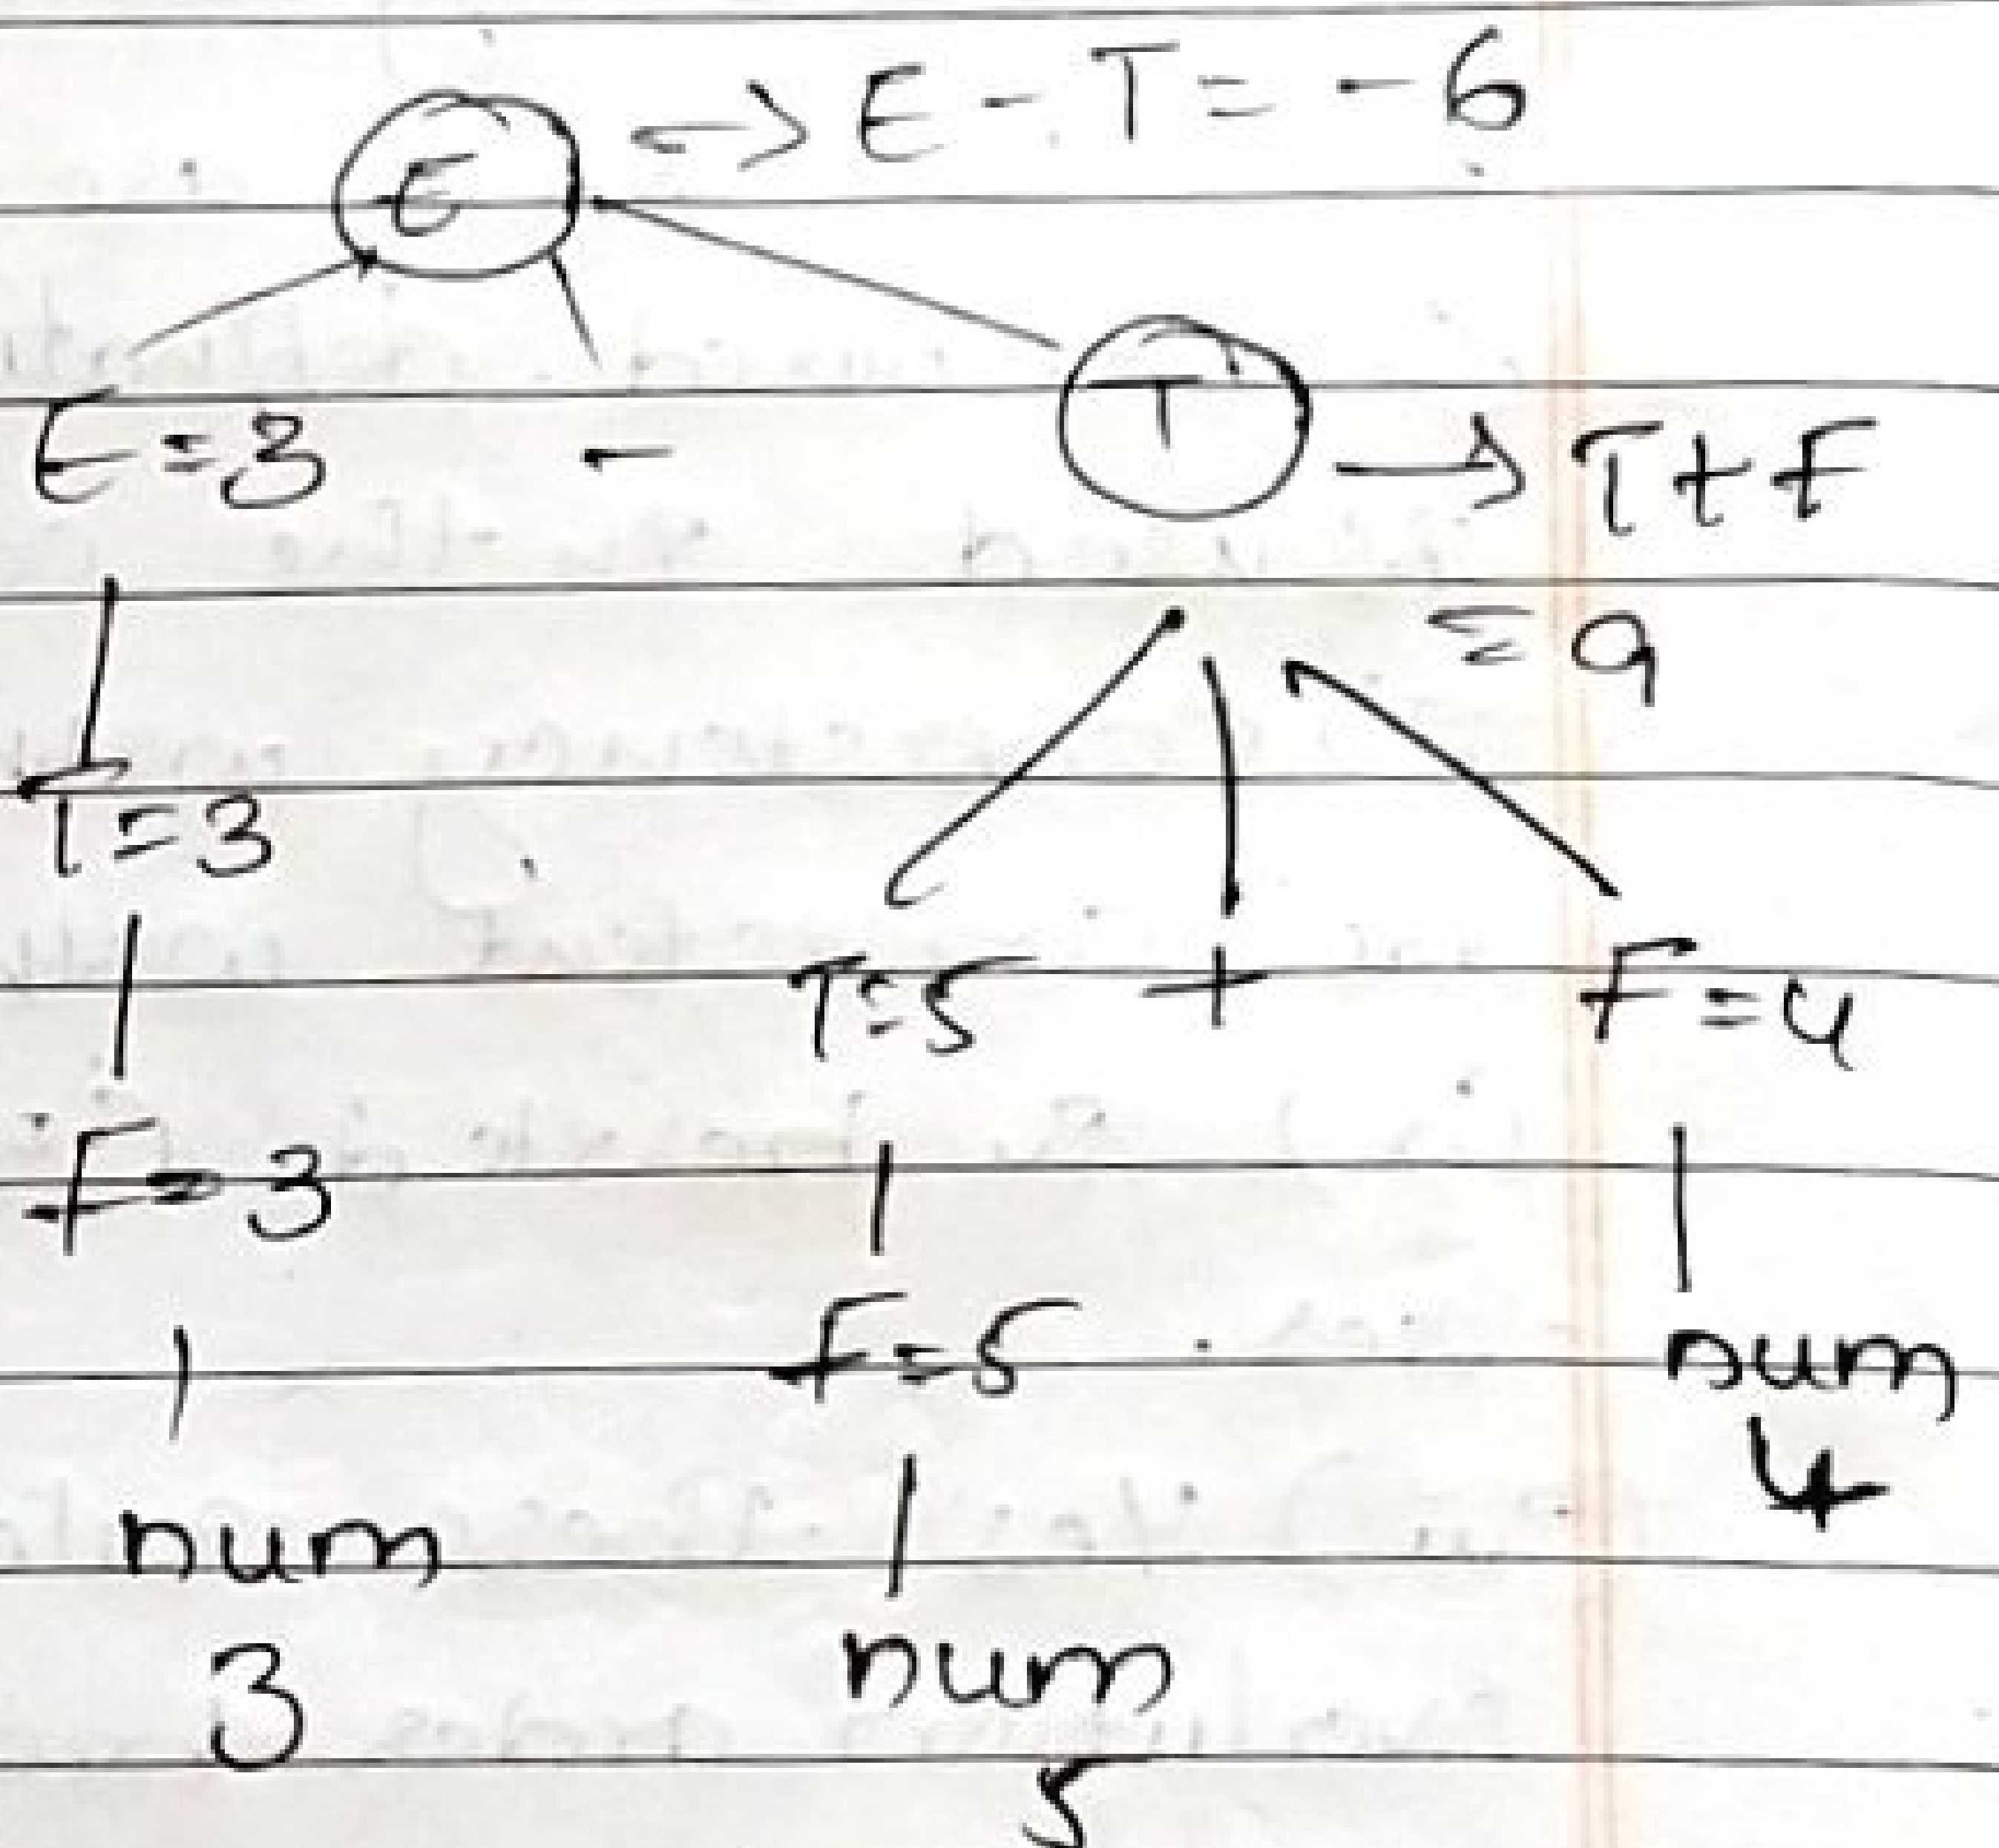 E <-> E - T = -6
E = 3 - T -> T + F
= 9
T = 3
T = 5 + F = 4
F = 3
F = 5 num
4
num
num
3
5